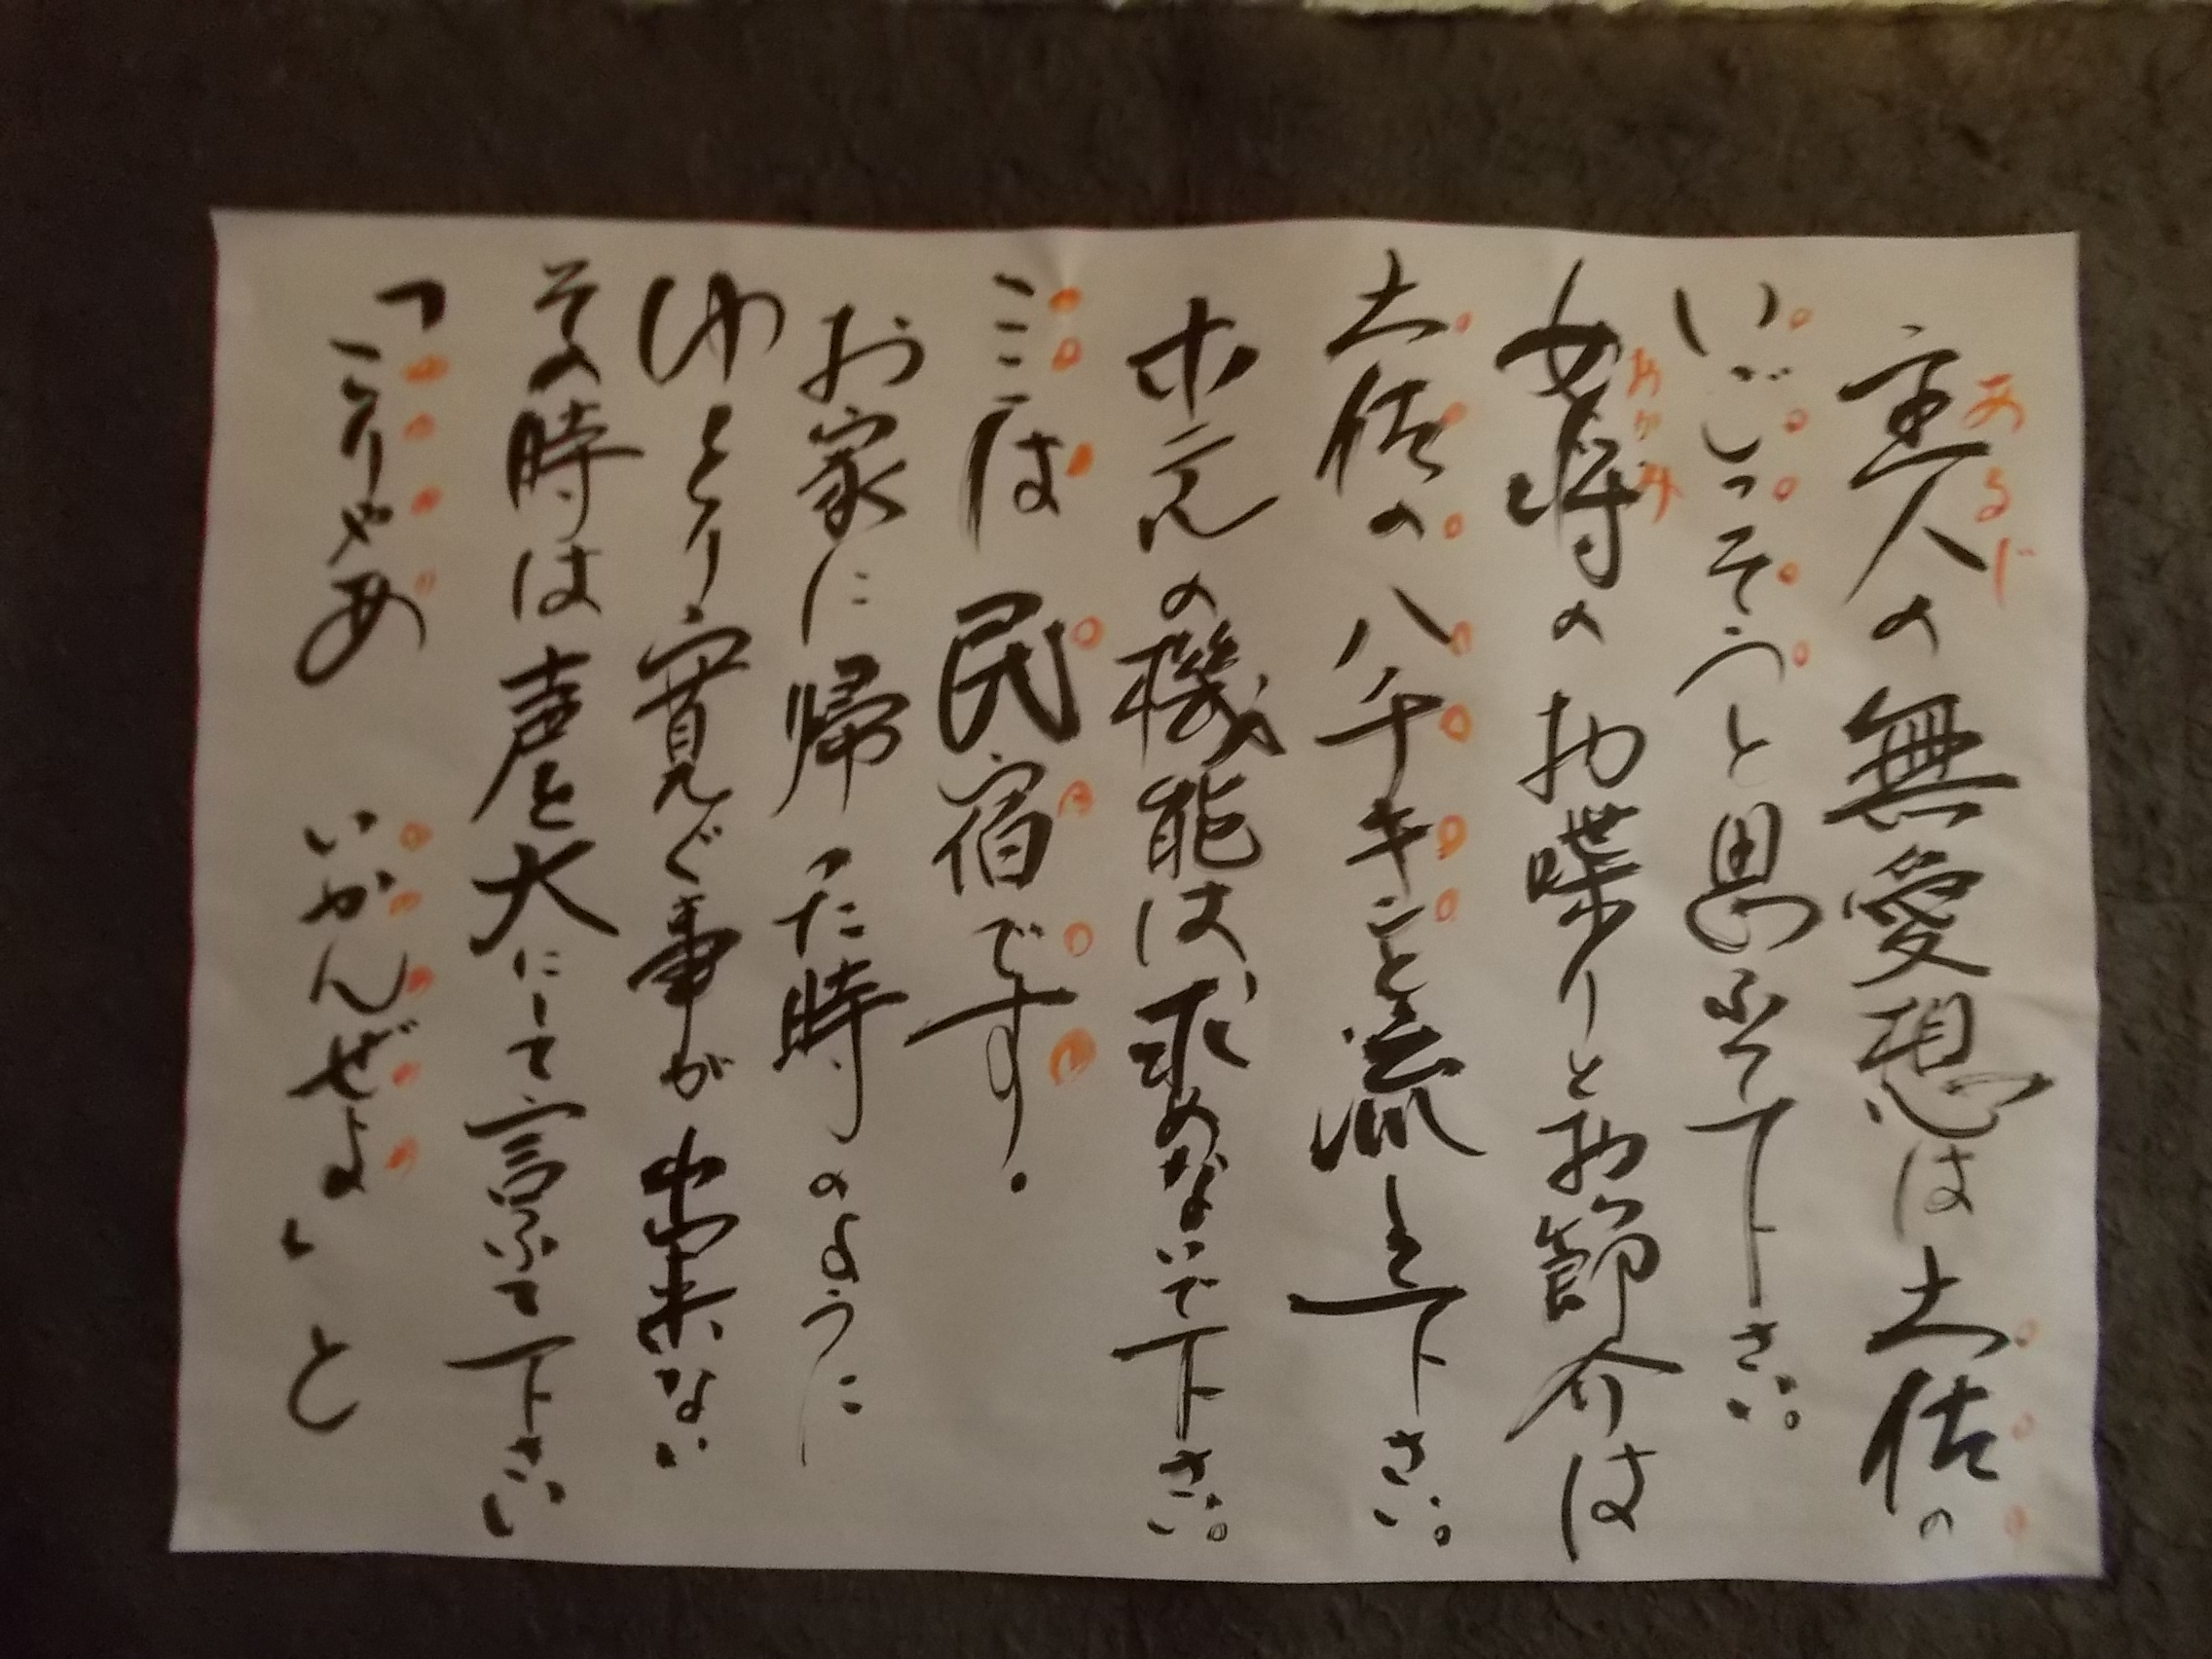 主人の無愛想は土佐の
いごっそうと思ふて下さい。
女将のお喋りとお節介は
土佐の八千キンと流して下さい。
ホテルの機能は求めないで下さい。
ここは民宿です。
お家に帰った時のように
ゆとり寛ぐ事が出来ない
その時は声を大にして言ふて下さい
「こりゃあ いかんぜよ」と
あるじ
おかみ